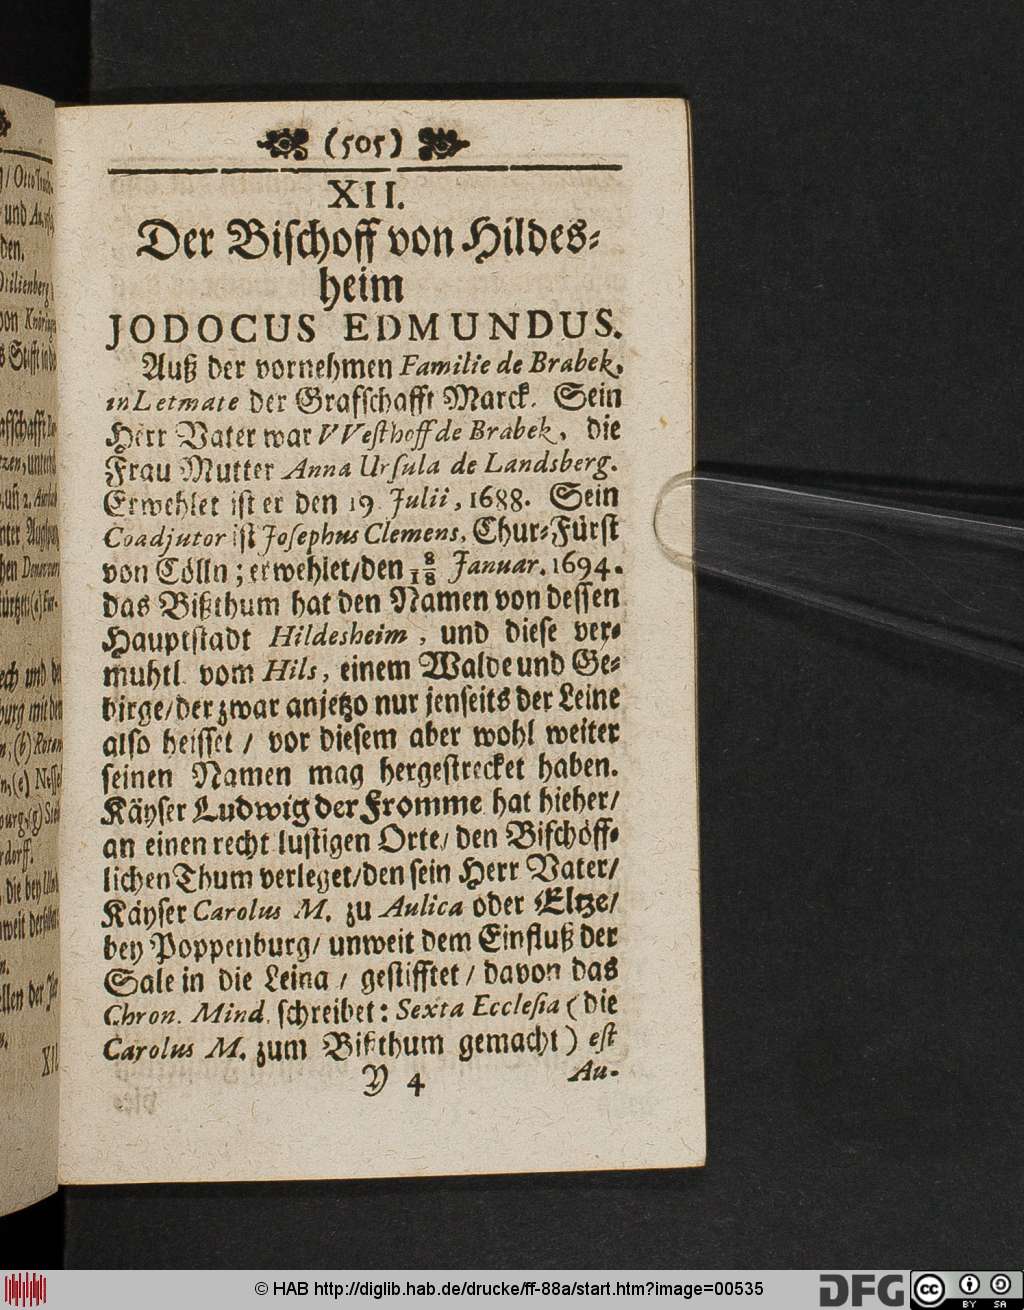 (505)
XII.
Der Bischoff von Hildes-
heim
JODOCUS EDMUNDUS.
Auß der vornehmen Familie de Brabek,
in Letmate der Grafschafft Marck. Sein
Herr Vater war VVesthoff de Brabek, die
Frau Mutter Anna Ursula de Landsberg.
Erwehlet ist er den 19 Julii, 1688. Sein
Coadjutor ist Josephus Clemens, Chur-Fürst
von Cölln; erwehlet/den 8/18 Januar. 1694.
das Bißthum hat den Namen von dessen
Hauptstadt Hildesheim, und diese ver-
muhtl. vom Hils, einem Walde und Ge-
birge/der zwar anjetzo nur jenseits der Leine
also heisset / vor diesem aber wohl weiter
seinen Namen mag hergestrecket haben.
Käyser Ludwig der Fromme hat hieher/
an einen recht lustigen Orte/ den Bischöff-
lichen Thum verleget/den sein Herr Vater/
Käyser Carolus M. zu Aulica oder Eltze/
bey Poppenburg/ unweit dem Einfluß der
Sale in die Leina / gestifftet/ davon das
Chron. Mind. schreibet: Sexta Ecclesia (die
Carolus M. zum Bißthum gemacht) est
Y 4 Au-
© HAB http://diglib.hab.de/drucke/ff-88a/start.htm?image=00535
DFG
cc BY SA